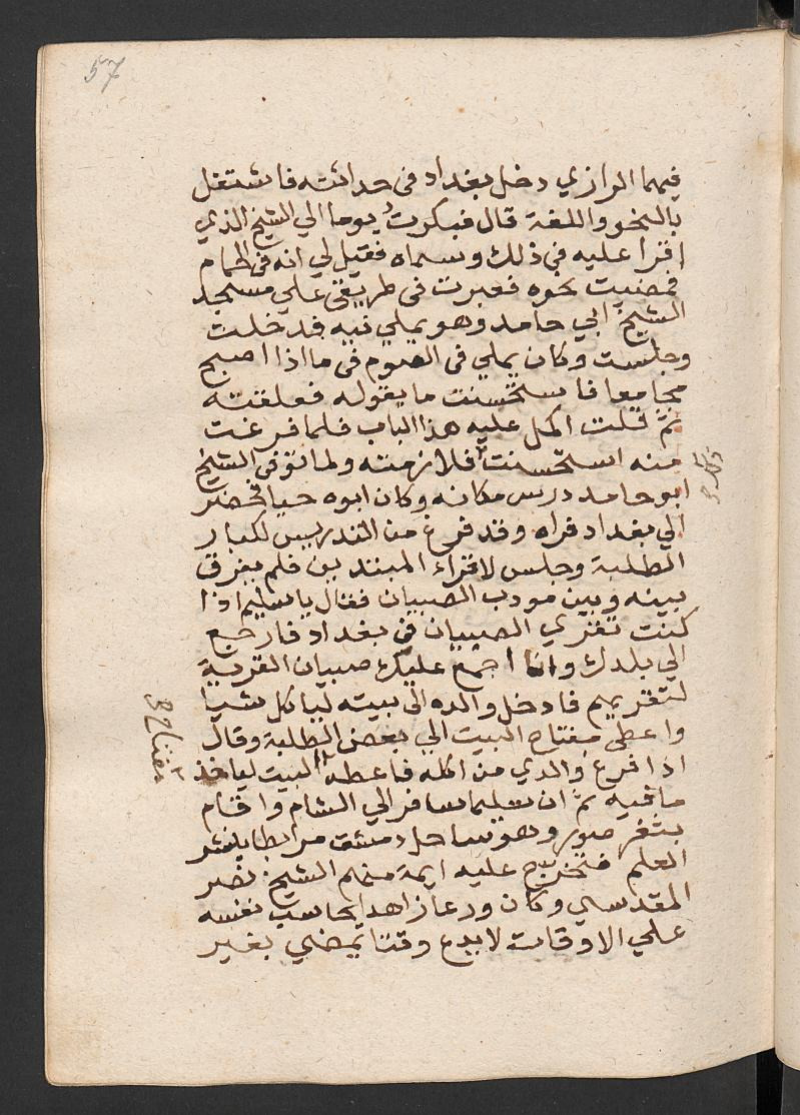 57
فيهما الرازي دخل بغداد في حداثته فاشتغل
بالنحو واللغة قال فبكرت يوما الي الشيخ الذي
اقرا عليه في ذلك وسماه فقيل لي انه في الحمام
فمضيت نحوه فعبرت في طريقي علي مسجد
الشيخ ابي حامد وهو يملي فيه فدخلت
وجلست وكان يملي في الصوم في ما اذا اصبح
مجامعا فاستحسنت ما يقوله فعلقته
ثم قلت اكمل عليه هذا الباب فلما فرغت
منه استحسنت فلازمته ولما توفي الشيخ
ابو حامد درس مكانه وكان ابوه حيا فحضر
الي بغداد فراه وقد فرغ من التدريس لكبار
الطلبة وجلس لاقراء المبتدين فلم يفرق
بينه وبين مودب الصبيان فقال يا سليم اذا
كنت تقري الصبيان في بغداد فارجع
الي بلدك وانا اجمع عليك صبيان القرية
لتقريهم فادخل والده الى بيته لياكل شيا
واعطى مفتاح البيت الي بعض الطلبة وقال
اذا فرغ والدي من اكله فاعطه البيت لياخذ
مافيه ثم ان سليما سافر الي الشام واقام
بثغر صور وهو ساحل دمشق مرابطا ينشر
العلم فتخرج عليه ايمة منهم الشيخ نصر
المقدسي وكان ورعا زاهدا يحاسب نفسه
علي الاوقات لا يدع وقتا يمضي بغير
مفتاح